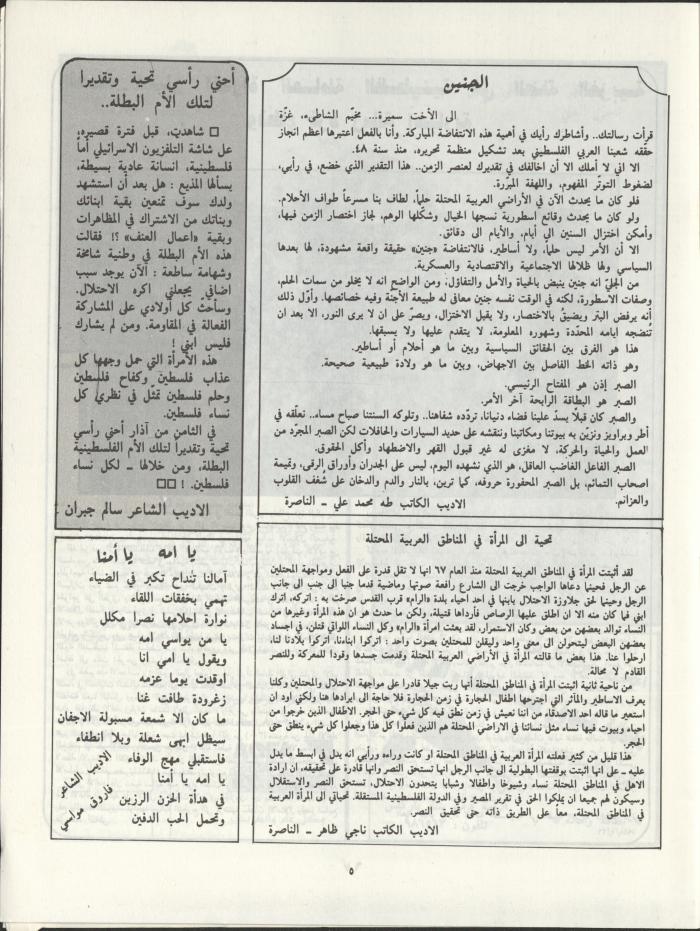 الجنين
الى الأخت سميرة... مخيّم الشاطىء، غزّة
قرأت رسالتك.. وأشاطرك رأيك في أهمية هذه الانتفاضة المباركة. وأنا بالفعل اعتبرها اعظم انجاز
حقّقه شعبنا العربي الفلسطيني بعد تشكيل منظمة تحريره، منذ سنة ٤٨.
الا اني لا أملك الا أن اخالفك في تقديرك لعنصر الزمن.. هذا التقدير الذي خضع، في رأيي،
لضغوط التوتّر المفهوم، واللهفة المبرّرة.
فلو كان ما يحدث الآن في الأراضي العربية المحتلة حلماً، لطاف بنا مسرعاً طواف الأحلام.
ولو كان ما يحدث وقائع اسطورية نسجها الخيال وشكّلها الوهم، لجاز اختصار الزمن فيها،
وأمكن اختزال السنين الى أيام، والأيام الى دقائق.
الا أن الأمر ليس حلماً، ولا أساطير، فالانتفاضة «جنين» حقيقة واقعة مشهودة، لها بعدها
السياسي ولها ظلالها الاجتماعية والاقتصادية والعسكرية.
من الجليّ انه جنين ينبض بالحياة والأمل والتفاؤل، ومن الواضح انه لا يخلو من سمات الحلم،
وصفات الاسطورة، لكنه في الوقت نفسه جنين معافى له طبيعة الأجنّة وفيه خصائصها. وأوّل ذلك
أنه يرفض البتر ويضيقُ بالاختصار، ولا يقبل الاختزال، ويصرّ على ان لا يرى النور، الا بعد ان
تُنضجه ايامه المحدّدة وشهوره المعلومة، لا يتقدم عليها ولا يسبقها.
هذا هو الفرق بين الحقائق السياسية وبين ما هو أحلام أو أساطير.
وهو ذاته الخط الفاصل بين الاجهاض، وبين ما هو ولادة طبيعية صحيحة.
الصبر إذن هو المفتاح الرئيسي.
الصبر هو البطاقة الرابحة آخر الأمر.
والصبر كان قبلًا يسدّ علينا فضاء دنيانا، تردّده شفاهنا.. وتلوكه السنتنا صباح مساء.. نعلّقه في
أطر وبراويز ونزيّن به بيوتنا ومكاتبنا وننقشه على حديد السيارات والحافلات لكن الصبر المجرّد من
العمل والحياة والحركة، لا مغزى له غير قبول القهر والاضطهاد وأكل الحقوق.
الصبر الفاعل الغاضب العاقل، هو الذي نشهده اليوم، ليس على الجدران وأوراق الرقى، وتميمة
اصحاب التمائم، بل الصبر المحفورة حروفه، كما ترين، بالنار والدم والدخان على شُغف القلوب
والعزائم.
الاديب الكاتب طه محمد علي ــ الناصرة
أحني رأسي تحية وتقديرا
لتلك الأم البطلة..
□ شاهدت، قبل فترة قصيره،
عل شاشة التلفزيون الاسرائيلي أماً
فلسطينية، انسانة عادية بسيطة،
يسألها المذيع : هل بعد أن استشهد
ولدك سوف تمنعين بقية ابنائك
وبناتك من الاشتراك في المظاهرات
وبقية «اعمال العنف» ؟! فقالت
هذه الأم البطلة في وطنية شامخة
وشهامة ساطعة : الآن يوجد سبب
اضافي يجعلني اكره الاحتلال.
وسأحث كل أولادي على المشاركة
الفعالة في المقاومة. ومن لم يشارك
فليس ابني !
هذه الأمرأة التي حمل وجهها كل
عذاب فلسطين وكفاح فلسطين
وحلم فلسطين تمثّل في نظري كل
نساء فلسطين.
في الثامن من آذار أحني رأسي
تحية وتقديرا لتلك الأم الفلسطينية
البطلة، ومن خلالها ــ لكل نساء
فلسطين. ! □□
الاديب الشاعر سالم جبران
تحية الى المرأة في المناطق العربية المحتلة
لقد أثبتت المرأة في المناطق العربية المحتلة منذ العام ٦٧ انها لا تقل قدرة على الفعل ومواجهة المحتلين
عن الرجل فحينما دعاها الواجب خرجت الى الشارع رافعة صوتها وماضية قدما جنبا الى جنب الى جانب
الرجل وحينما لحق جلاوزة الاحتلال بابنها في احد احياء بلدة «الرام» قرب القدس صرخت به : اتركه، اترك
ابني فما كان منه الا ان اطلق عليها الرصاص فأرداها قتيلة، ولكن ما حدث هو ان هذه المرأة وغيرها من
النساء توالد بعضهن من بعض وكان الاستمرار، لقد بعثت امرأة «الرام» وكل النساء اللواتي قتلن، في اجساد
بعضهن البعض ليتحولن الى معنى واحد وليقلن للمحتلين بصوت واحد : اتركوا ابناءنا، اتركوا بلادنا لنا،
ارحلوا عنا. هذا بعض ما قالته المرأة في الأراضي العربية المحتلة وقدمت جسدها وقودا للمعركة وللنصر
القادم لا محالة.
من ناحية ثانية اثبتت المرأة في المناطق المحتلة أنها ربت جيلا قادرا على مواجهة الاحتلال والمحتلين وكلنا
يعرف الاساطير والمآثر التي اجترحها اطفال الحجارة في زمن الحجارة فلا حاجة الى ايرادها هنا ولكني اود ان
استعير ما قاله احد الاصدقاء من اننا نعيش في زمن نطق فيه كل شيء حتى الحجر، الاطفال الذين خرجوا من
احياء وبيوت فيها نساء مثل نسائنا في الاراضي المحتلة هم الذين فعلوا كل هذا وجعلوا كل شيء ينطق حتى
الحجر.
هذا قليل من كثير فعلته المرأة العربية في المناطق المحتلة او كانت وراءه ورأيي انه يدل في ابسط ما يدل
عليه ــ على انها اثبتت بوقفتها البطولية الى جانب الرجل انها تستحق النصر وانها قادرة على تحقيقه، ان ارادة
الاهل في المناطق المحتلة نساء وشيوخا واطفالا وشبابا يتحدون الاحتلال، تستحق النصر والاستقلال
وسيكون لهم جميعا ان يملكوا الحق في تقرير المصير وفي الدولة الفلسطينية المستقلة. تحياتي الى المرأة العربية
في المناطق المحتلة، معاً على الطريق ذاته حتى تحقيق النصر.
الاديب الكاتب ناجي ظاهر ــ الناصرة
يا امه يا أمنا
آمالنا تنداح تكبر في الضياء
تهمي بخفقات اللقاء
نوارة احلامها نصرا مكلل
يا من يواسي امه
ويقول يا امي انا
اوقدت يوما عزمه
زغرودة طافت غنا
ما كان الا شمعة مسبولة الاجفان
سيظل ابهى شعلة وبلا انطفاء
فاستقبلي مهج الوفاء
يا امه يا أمنا
في هدأة الحزن الرزين
وتحمل الحب الدفين
الاديب الشاعر
فاروق مواسي
٥